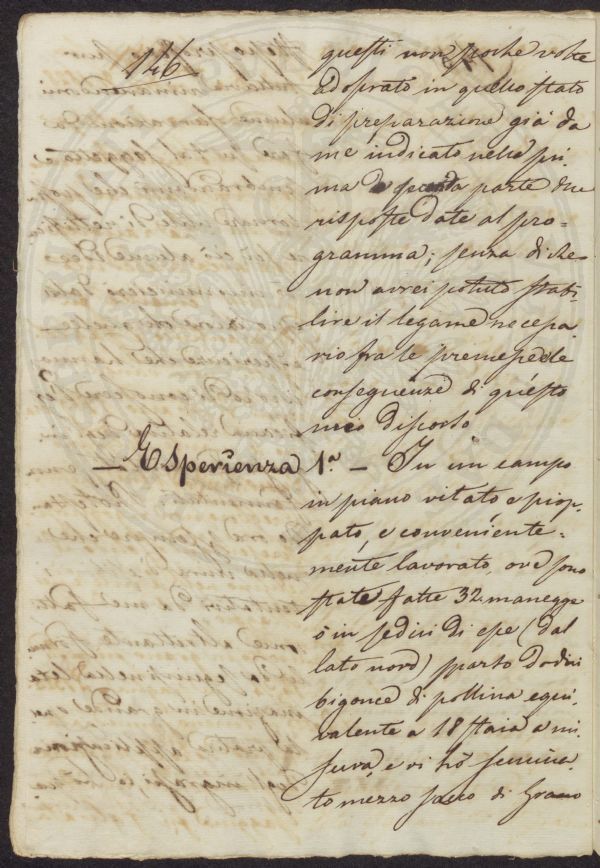 146
questi non poche volte
adoprato in quello stato
di preparazione già da
me indicato nella pri-
ma e seconda parte due
risposte date al pro-
gramma; senza di che
non avrei potuto stabi
lire il legame necessa
rio fra le premesse e le
conseguenze di questo
mio discorso
— Esperienza 1.a — In un campo
in piano vitato e piop-
pato, e conveniente-
mente lavorato, ove sono
state fatte 32 manegge
ò in sedici di esse (dal
lato nord) sparso dodici
bigonce di pollina equi
valente a 18 staia a mi
sura, e vi hò semina-
to mezzo sacco di Grano